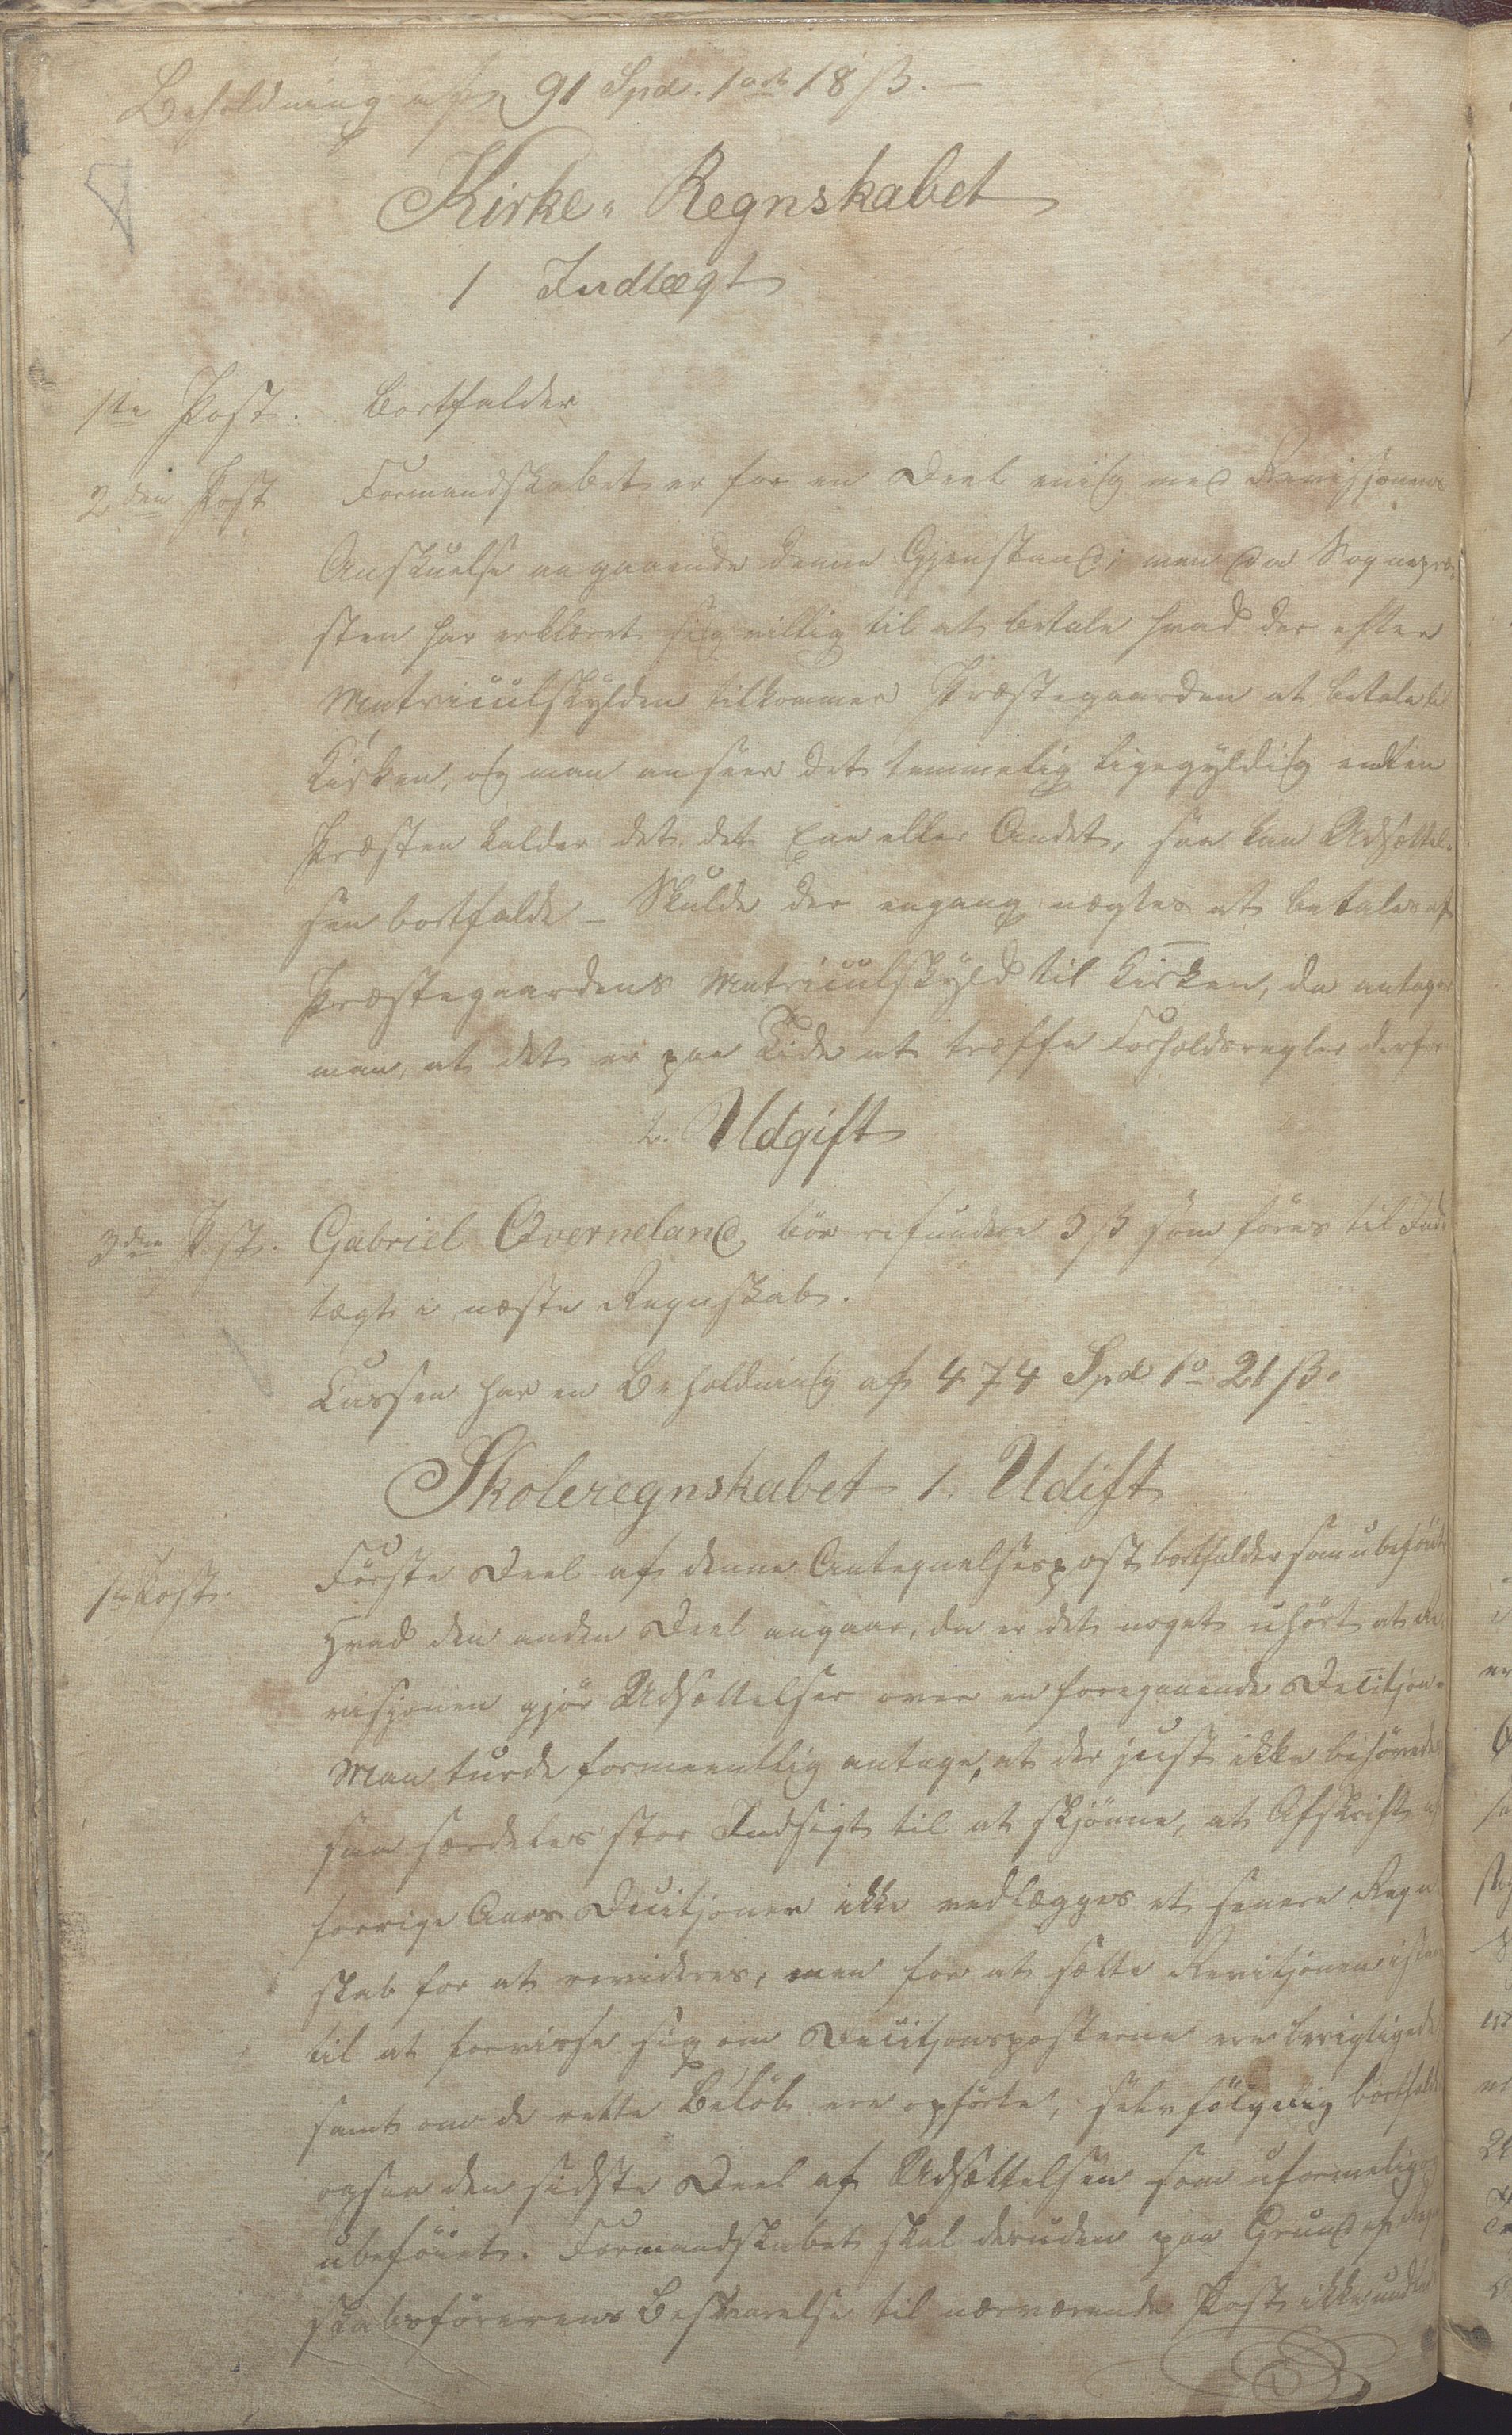 Beholdning af 91 Spd. 1 ort 18 ß. —
Kirke-Regnskabet
1 Indtægt
1ste Post. Bortfalder
2den Post Formandskabet er for en Deel enig med Revisjonens
Anskuelse angaaende denne Gjenstand; men da Sognepræ-
sten har erklæret sig villig til at betale hvad der efter
Matriculskylden tilkommer Præstegaarden at betale til
Kirken, og man anseer det temmelig ligegyldig enten
Præsten kalder det det Ene eller Andet, saa kan Udsættel-
sen bortfalde – Skulde der engang nægtes at betales af
Præstegaardens Matriculskyld til Kirken, da antager
man, at det er paa Tide at træffe Forholdsregler derfor
2. Udgift
3die Post. Gabriel Øverneland bør refundere 5 ß som føres til Ind-
tægt i næste Regnskab.
Cassen har en Beholdning af 474 Spd 1 o 21 ß.
Skoleregnskabet 1. Udift
1ste Post. Første Deel af denne Antegnelsespost bortfalder som ubeføiet
Hvad den anden Deel angaar, da er det noget uhørt at Re-
visjonen gjør Udsættelser over en foregaaende Decisjon.
Man turde formeentlig antage, at der just ikke behøvedes
saa særdeles stor Indsigt til at skjønne, at Afskrift af
forrige Aars Decisjoner ikke vedlægges et senere Regn-
skab for at revideres, men for at sætte Revisjonen istand
til at forvisse sig om Decisjonsposterne ere berigtigede
samt om de rette Beløb ere opførte, følgelig bortfalder
ogsaa den sidste Deel af Udsættelsen som uformelig og
ubeføiet. Formandskabet skal desuden paa Grund af Regn-
skabsførerens Besvarelse til nærværende Post ikke undlade